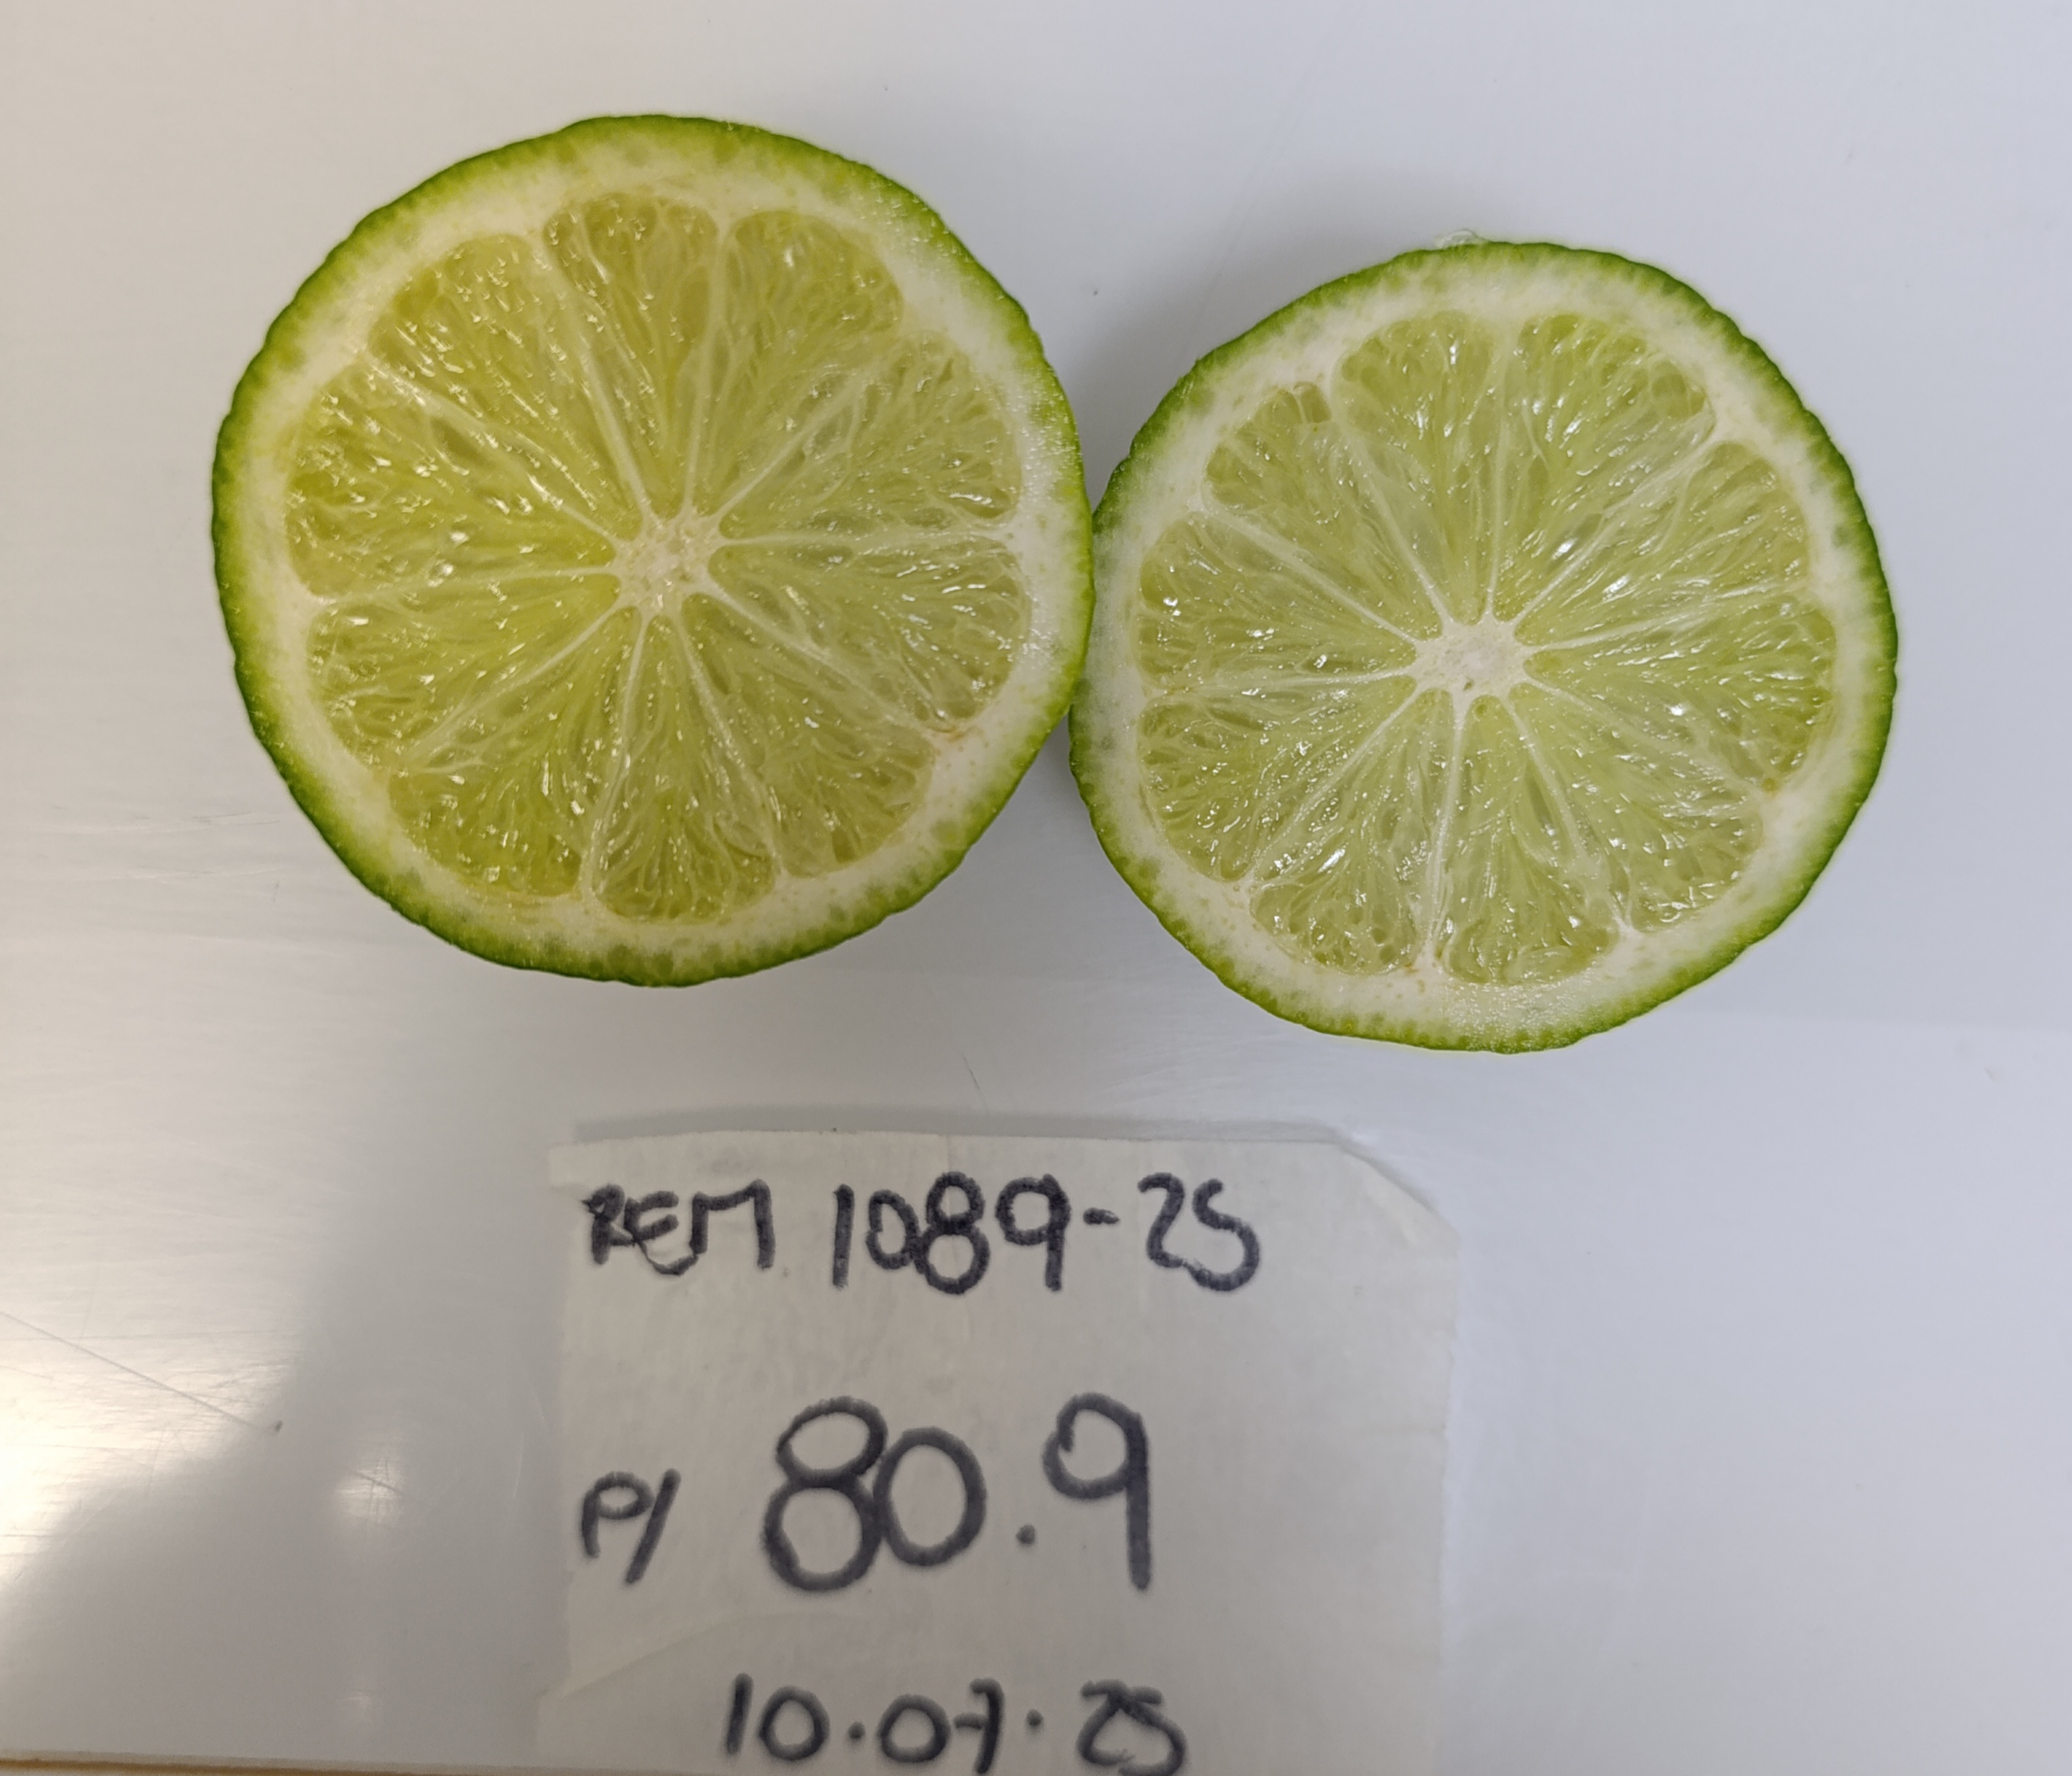 REM 1089-25
P/ 80.9
10.07.25